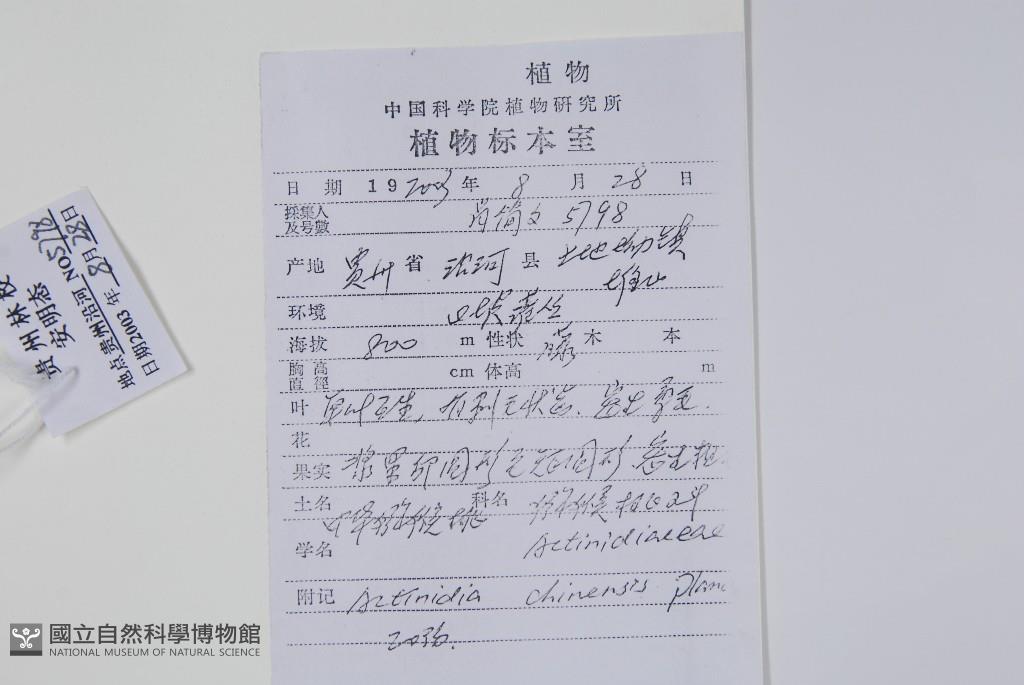 植物
中国科学院植物研究所
植物标本室
日 期 19 2003 年 8 月 28 日
採集人
及号數 肖简文 5798
产地 贵州 省 沿河 县
环境
海拔 800 m 性状 藤 木 本
胸高
直徑 cm 体高 m
叶 单叶互生,
花
果实 浆果卵圆形
土名 中华猕猴桃 科名 猕猴桃科
学名 Actinidiaceae
附记 Actinidia chinensis plan
贵州林校
贵 安明态
地点贵州沿河 NO5798
日期2003 年 8月 28日
國立自然科學博物館
NATIONAL MUSEUM OF NATURAL SCIENCE